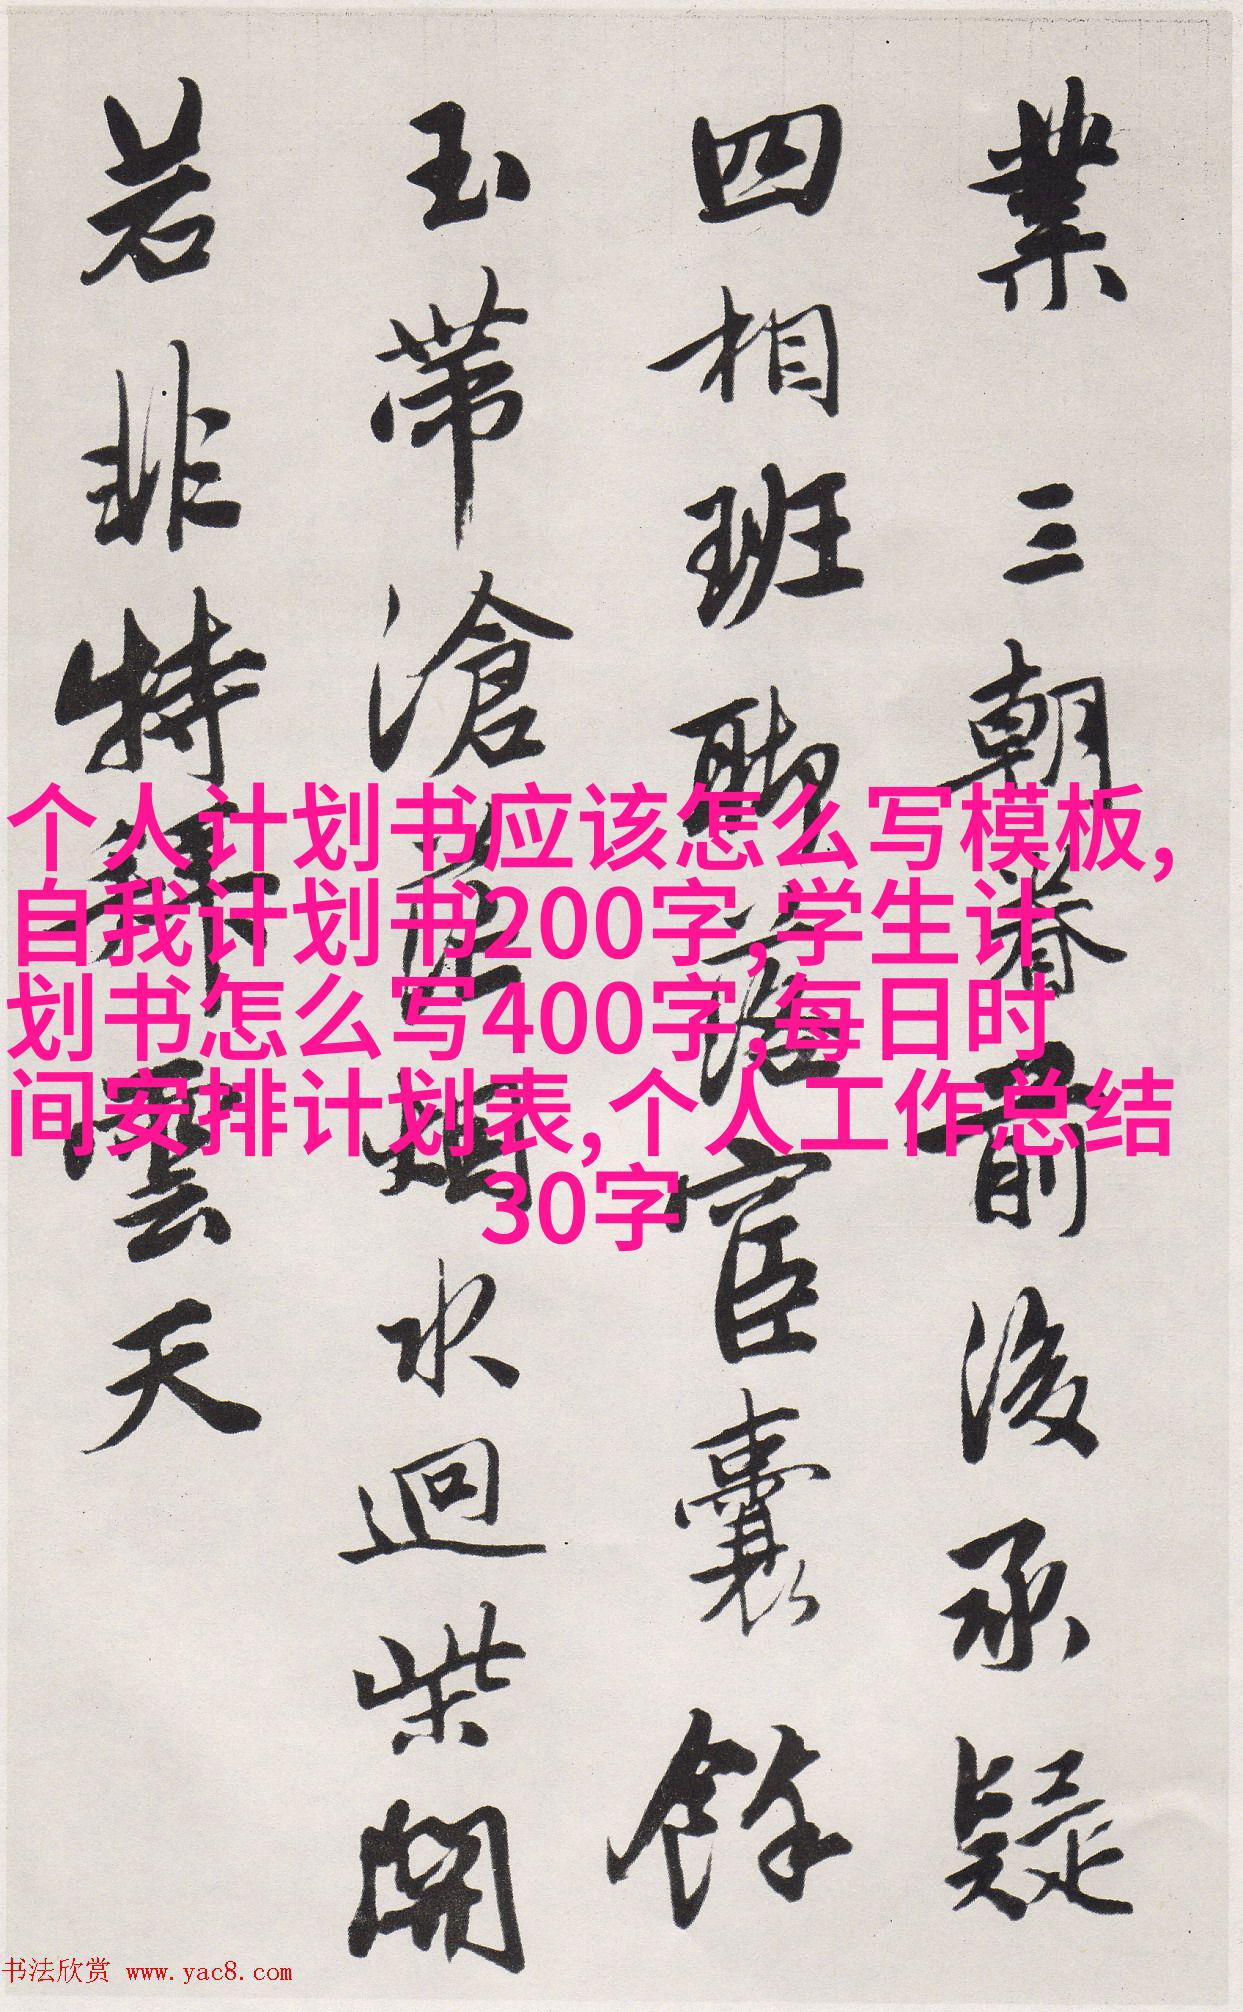 業 三朝眷前後承疑
四相班聯宦囊餘
玉帶滄烟水迴柴開
若非特雲天
个人计划书应该怎么写模板,
自我计划书200字,学生计
划书怎么写400字,每日时
间安排计划表,个人工作总结
30字
书法欣赏 www.yac8.com